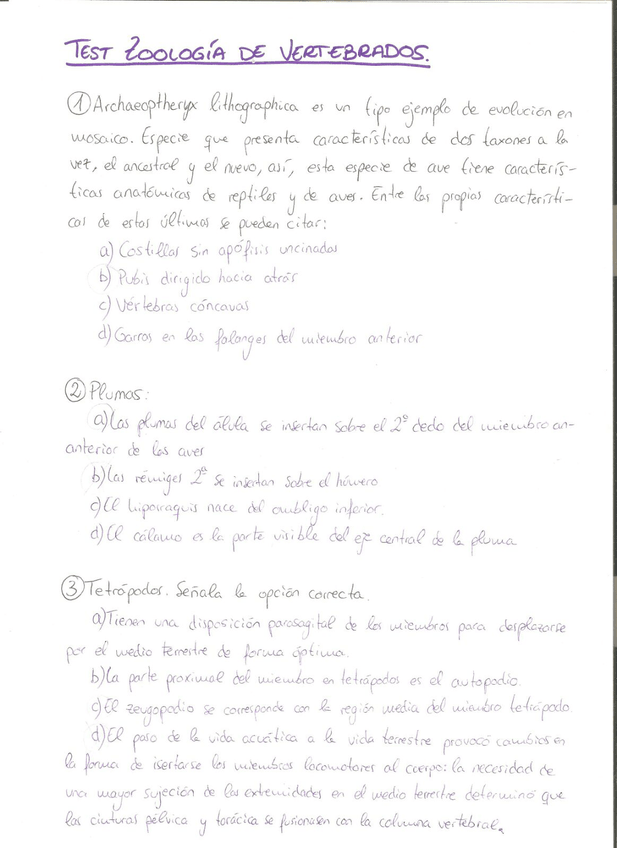 TEST ZOOLOGÍA DE VERTEBRADOS.
① Archaeoptheryx lithographica es un tipo ejemplo de evolución en
mosaico. Especie que presenta características de dos taxones a la
vez, el ancestral y el nuevo, así, esta especie de ave tiene caracterís-
ticas anatómicas de reptiles y de aves. Entre las propias característi-
cas de estos últimos se pueden citar:
a) Costillas sin apófisis uncinadas
b) Pubis dirigido hacia atrás
c) Vértebras cóncavas
d) Garras en las falanges del miembro anterior
② Plumas:
a) Las plumas del álula se insertan sobre el 2º dedo del miembro an-
anterior de las aves
b) Las rémiges 2ª se insertan sobre el húmero
c) El hiporraquis nace del ombligo inferior.
d) El cálamo es la parte visible del eje central de la pluma
③ Tetrápodos. Señala la opción correcta.
a) Tienen una disposición parasagital de los miembros para desplazarse
por el medio terrestre de forma óptima.
b) La parte proximal del miembro en tetrápodos es el autopodio.
c) El zeugopodio se corresponde con la región media del miembro tetrápodo
d) El paso de la vida acuática a la vida terrestre provocó cambios en
la forma de isertarse los miembros locomotores al cuerpo: la necesidad de
una mayor sujeción de las extremidades en el medio terrestre determinó que
las cinturas pélvica y torácica se fusionasen con la columna vertebral.